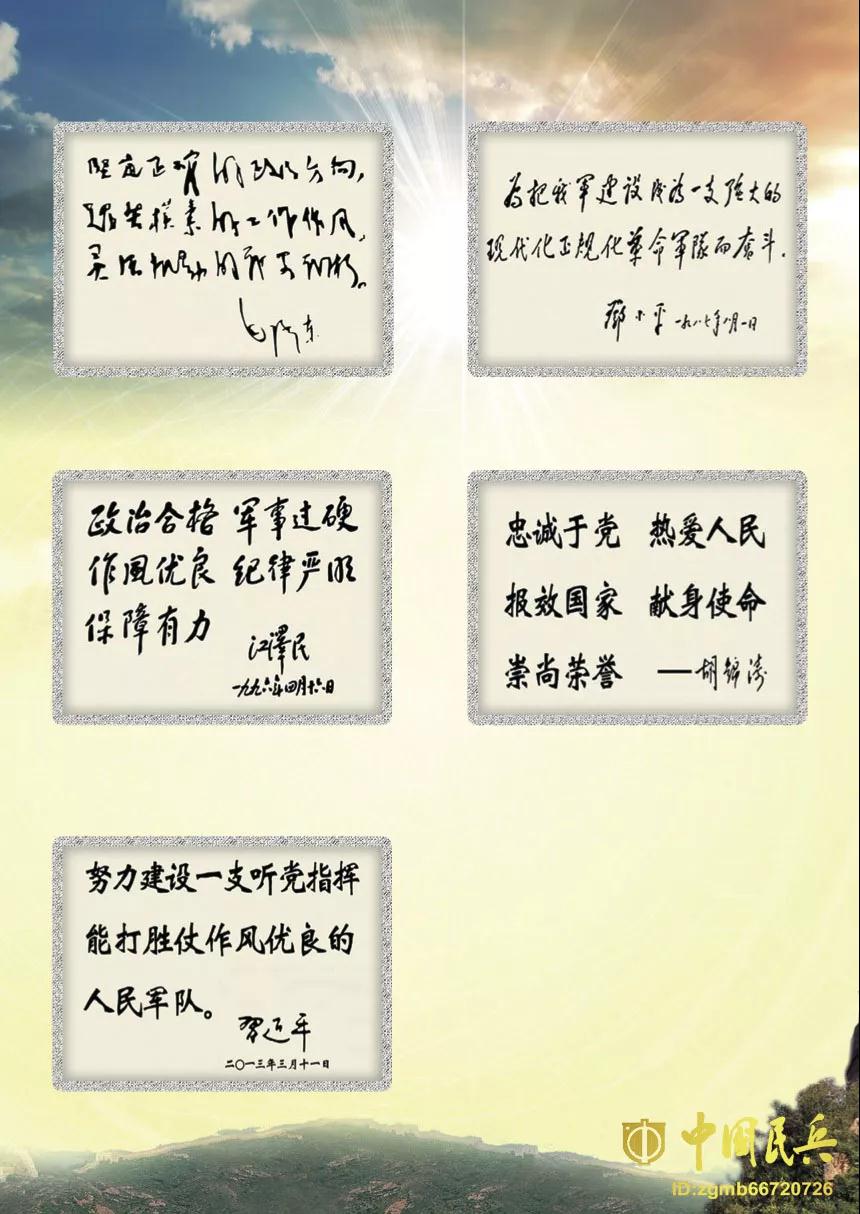 坚定正确的政治方向，
艰苦朴素的工作作风，
灵活机动的战略战术。
毛泽东
为把我军建设成为一支强大的
现代化正规化革命军队而奋斗.
邓小平 一九八七年八月一日
政治合格 军事过硬
作风优良 纪律严明
保障有力
江澤民
一九九六年四月十六日
忠诚于党 热爱人民
报效国家 献身使命
崇尚荣誉 —胡锦涛
努力建设一支听党指挥
能打胜仗作风优良的
人民军队。
习近平
二〇一三年三月十一日
中国民兵
ID:zgmb66720726